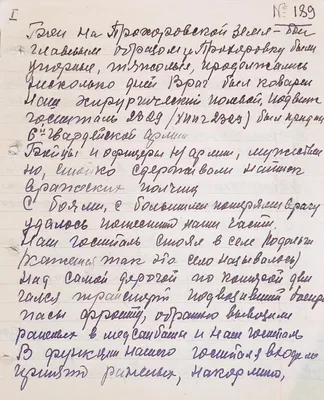 I
№ 189
Бои на Прохоровской земле - бои
главным образом у Прохоровки были
упорные, тяжелые, продолжались
несколько дней Враг был коварен
Наш хирургический полевой подвиж
госпиталь 2829 (ХППГ 2829) был придан
6ой гвардейской армии
Бойцы и офицеры армии, мужествен
но, стойко сдерживали натиск
вражеских полчищ
С боями, с большими потерями врагу
удалось потеснить наши части.
Наш госпиталь стоял в селе Подольхи
(кажется так это село называлось)
над самой дорогой по которой дви
гался транспорт подвозивший боепри
пасы фронту, обратно вывозили
раненых в медсанбаты и наш госпиталь
В функции нашего госпиталя входило
принять раненых, накормить,